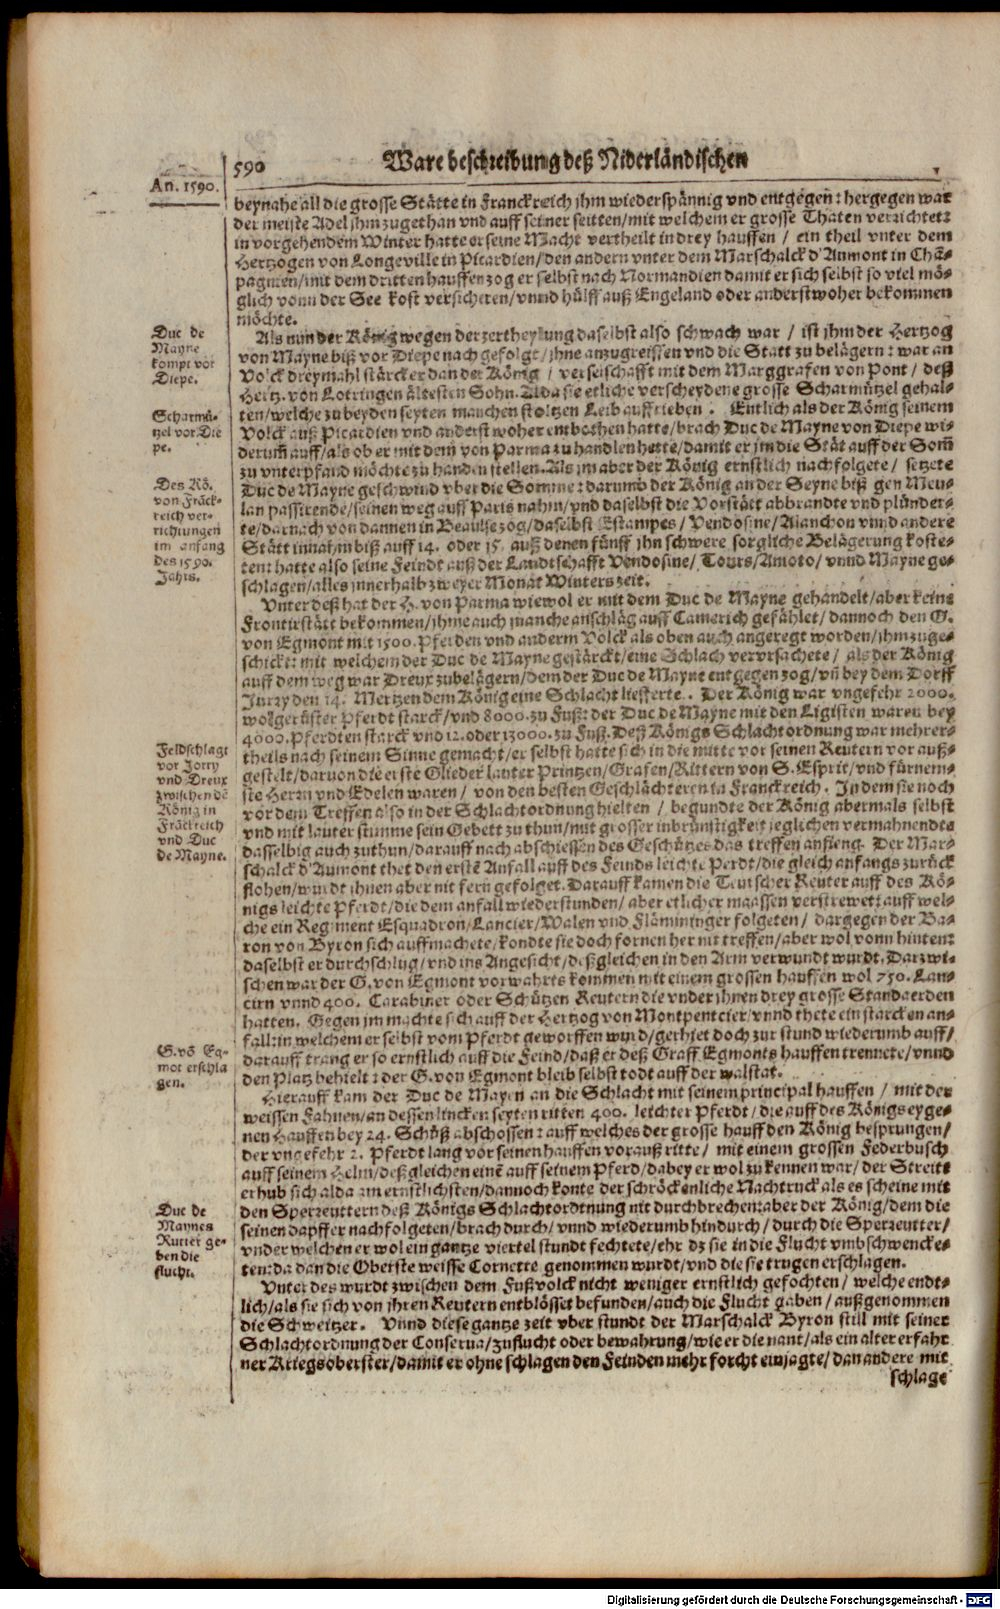 590 Ware beschreibung deß Niderländischen
An. 1590.
beynahe all die grosse Stätte in Franckreich jhm wiederspännig vnd entgegen: hergegen war
der meiste Adel jhm zugethan vnd auff seiner seitten/ mit welchem er grosse Thaten verrichtet:
in vorgehendem Winter hatte er seine Macht vertheilt in drey hauffen / ein theil vnter dem
Hertzogen von Longeville in Picardien/ den andern vnter dem Marschalck d'Aumont in Chā-
pagnien/ mit dem dritten hauffen zog er selbst nach Normandien damit er sich selbst so viel mög-
glich vonn der See kost versicheren/ vnnd hülff auß Engeland oder anderstwoher bekommen
möchte.
Duc de
Mayne
kompt vor
Diepe.
Als nun der König wegen der zertheylung daselbst also schwach war / ist jhm der Hertzog
von Mayne biß vor Diepe nachgefolgt/ jhne anzugreiffen vnd die Statt zu belägern: war an
Volck dreymahl stärcker dan der König / verselschafft mit dem Marggrafen von Pont / deß
Hertz. von Lotringen ältesten Sohn. Alda sie etliche verscheydene grosse Scharmützel gehal-
Scharmü-
tzel vor Die
pe.
ten/ welche zu beyden seyten manchen stoltzen Leib auffrieben. Entlich als der König seinem
Volck auß Picardien vnd anderst woher entbothen hatte/ brach Duc de Mayne von Diepe wi-
derum̄ auff/ als ob er mit dem von Parma zu handlen hette/ damit er jm die Stät auff der Som̄
zu vnterpfand möchte zu handen stellen. Als jm aber der König ernstlich nachfolgete/ setzete
Des Kö.
von Fräck-
reich ver-
richtungen
im anfang
des 1590.
Jahrs.
Duc de Mayne geschwind vber die Somme: darumb der König an der Seyne biß gen Meu-
lan passirende/ seinen weg auff Paris nahm/ vnd daselbst die Vorstätt abbrandte vnd plünder-
te/ darnach von dannen in Beausse zog/ daselbst Estampes/ Vendosine/ Alanchon vnnd andere
Stätt innahm biß auff 14. oder 15. auß denen fünff jhn schwere sorgliche Belägerung koste-
ten: hatte also seine Feindt auß der Landtschafft Vendosine/ Tours/ Amoto/ vnnd Mayne ge-
schlagen/ alles innerhalb zweyer Monat Winters zeit.
Vnter deß hat der H. von Parma wiewol er mit dem Duc de Mayne gehandelt/ aber keine
Frontirstätt bekommen/ jhme auch manche anschläg auff Camerich gefählet/ dannoch den G.
von Egmont mit 1500. Pferden vnd anderm Volck als oben auch angeregt worden/ jhm zuge-
schickt: mit welchem der Duc de Mayne gestärckt/ eine Schlach vervrsachete/ als der König
auff dem weg war Dreux zubelägern/ dem der Duc de Mayne entgegen zog/ vn̄ bey dem Dorff
Jurry den 14. Mertzen dem König eine Schlacht liefferte. Der König war vngefehr 2000.
wolgerüster Pferdt starck/ vnd 8000. zu Fuß: der Duc de Mayne mit den Ligisten waren bey
4000. Pferdten starck vnd 12. oder 13000. zu Fuß. Deß Königs Schlachtordnung war mehrer-
Feldschlagt
vor Jorry
vnd Dreux
zwischen dē
König in
Fräckreich
vnd Duc
de Mayne.
theils nach seinem Sinne gemacht/ er selbst hatte sich in die mitte vor seinen Reutern vor auß-
gestelt/ daruon die erste Glieder lauter Printzen/ Grafen/ Rittern von S. Esprit/ vnd fürnem-
ste Herrn vnd Edelen waren / von den besten Geschlächteren in Franckreich. In dem sie noch
vor dem Treffen also in der Schlachtordnung hielten / begundte der König abermals selbst
vnd mit lauter stimme sein Gebett zu thun/ mit grosser inbrünstigkeit jeglichen vermahnendte
dasselbig auch zuthun/ darauff nach abschiessen des Geschützes das treffen anfieng. Der Mar-
schalck d'Aumont thet den erstē Anfall auff des Feinds leichte Perdt/ die gleich anfangs zurück
flohen/ wurdt jhnen aber nit fern gefolget. Darauff kamen die Teutscher Reuter auff des Kö-
nigs leichte Pferdt/ die dem anfall wiederstunden/ aber etlicher maassen verstrewet: auff wel-
che ein Regiment Esquadron/ Lancier/ Walen vnd Fläminiger folgeten/ dargegen der Ba-
ron von Byron sich auffmachete/ kondte sie doch fornen her nit treffen/ aber wol vonn hinten:
daselbst er durchschlug/ vnd ins Angesicht/ deßgleichen in den Arm verwundt wurdt. Darzwi-
schen war der G. von Egmont vorwahrts kommen mit einem grossen hauffen wol 750. Lan-
cirn vnnd 400. Carabiner oder Schützen Reutern die vnder jhnen drey grosse Standaerden
hatten. Gegen jm machte sich auff der Hertzog von Montpentcier/ vnnd thete ein starcken an-
fall: in welchem er selbst vom Pferdt geworffen wurd/ gerhiet doch zur stund wiederumb auff/
G. vō Eg-
mot erschla
gen.
darauff trang er so ernstlich auff die Feind/ daß er deß Graff Egmonts hauffen trennete/ vnnd
den Platz behielt: der G. von Egmont bleib selbst todt auff der walstat.
Hierauff kam der Duc de Mayen an die Schlacht mit seinem principal hauffen / mit der
weissen Fahnen/ an dessen lincken seyten ritten 400. leichter Pferdt/ die auff des Königs eyge-
nen Hauffen bey 24. Schüß abschossen: auff welches der grosse hauff den König besprungen/
der vngefehr 2. Pferdt lang vor seinen hauffen vorauß ritte/ mit einem grossen Federbusch
auff seinem Helm/ deßgleichen einē auff seinem Pferd/ dabey er wol zu kennen war/ der Streite
erhub sich alda am ernstlichsten/ dannoch konte der schröckenliche Nachtruck als es scheine mit
Duc de
Maynes
Rutter ge-
ben die
flucht.
den Sperreuttern deß Königs Schlachtordtnung nit durchbrechen: aber der König/ dem die
seinen dapffer nachfolgeten/ brach durch/ vnnd wiederumb hindurch/ durch die Sperreutter/
vnder welchen er wol ein gantze viertel stundt fechtete/ ehr dz sie in die Flucht vmbschwencke-
ten: da dan die Oberste weisse Cornette genommen wurdt/ vnd die sie trugen erschlagen.
Vnter des wurdt zwischen dem Fußvolck nicht weniger ernstlich gefochten/ welche endt-
lich/ als sie sich von jhren Reutern entblösset befunden/ auch die Flucht gaben/ außgenommen
die Schweitzer. Vnnd diese gantze zeit vber stundt der Marschalck Byron still mit seiner
Schlachtordnung der Conserua/ zuflucht oder bewahrung/ wie er die nant/ als ein alter erfahr
ner Kriegsoberster/ damit er ohne schlagen den Feinden mehr forcht einjagte/ dan andere mit
schlage
Digitalisierung gefördert durch die Deutsche Forschungsgemeinschaft - DFG